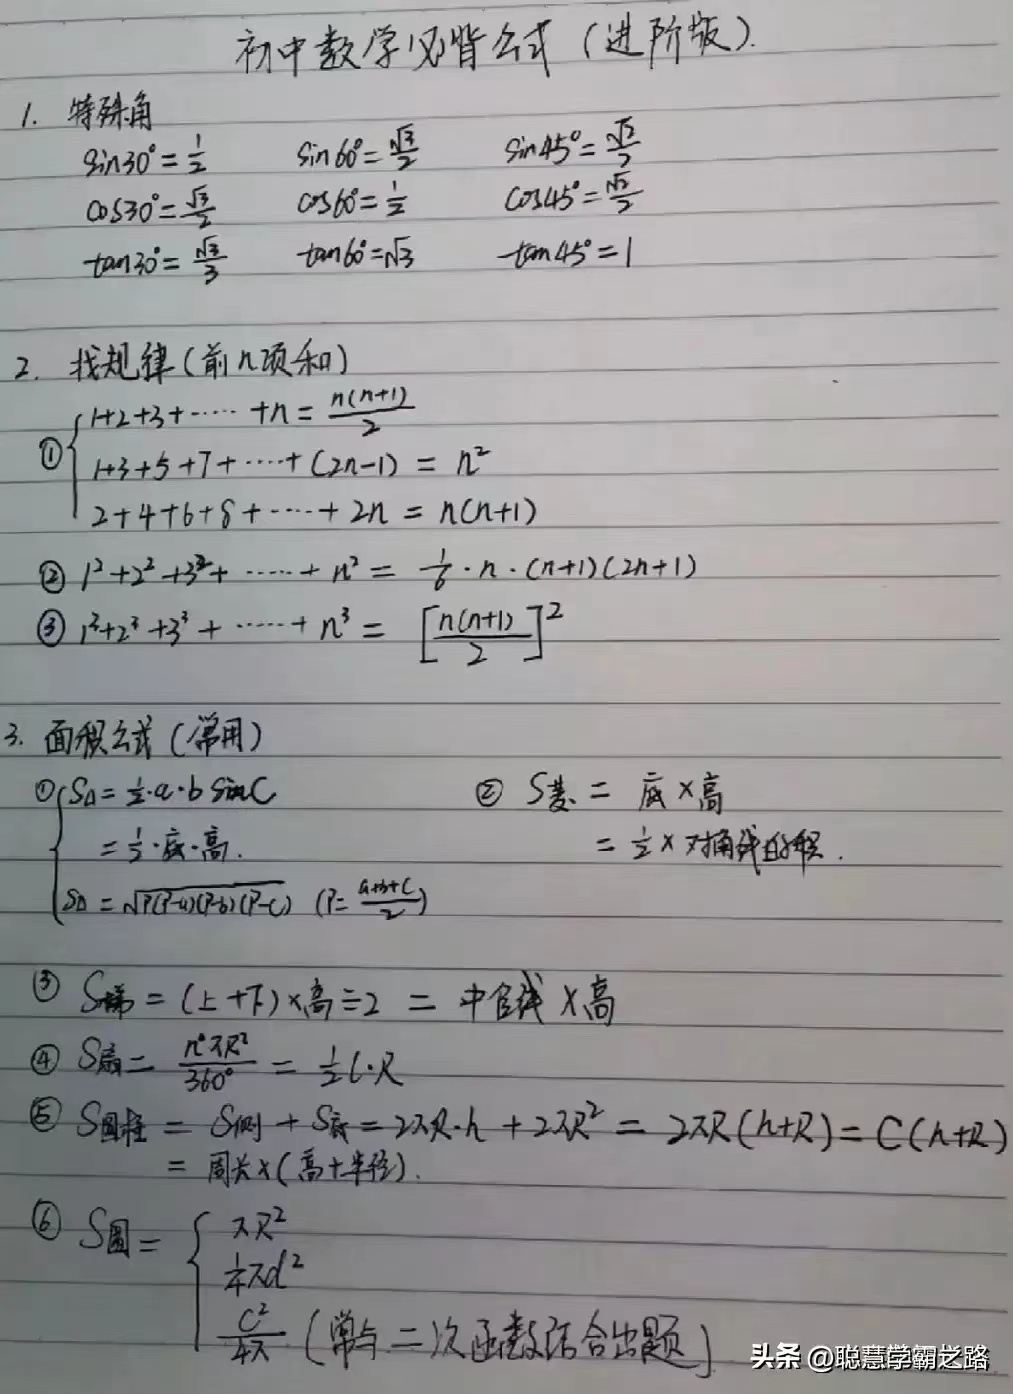 初中数学必背公式（进阶版）.
1. 特殊角
sin30°=1/2 sin60°=√3/2 sin45°=√2/2
cos30°=√3/2 cos60°=1/2 cos45°=√2/2
tan30°=√3/3 tan60°=√3 tan45°=1
2. 找规律（前n项和）
① { 1+2+3+……+n=n(n+1)/2
1+3+5+7+……+(2n-1)=n²
2+4+6+8+……+2n=n(n+1)
② 1²+2²+3²+……+n²=1/6·n·(n+1)(2n+1)
③ 1³+2³+3³+……+n³=[n(n+1)/2]²
3. 面积公式（常用）
① { S△=1/2·a·b sinC ② S菱=底×高
=1/2·底·高. =1/2×对角线的积.
S△=√P(P-a)(P-b)(P-c) (P=a+b+c/2)
③ S梯=(上+下)×高÷2=中位线×高
④ S扇=n°πR²/360°=1/2l·R
⑤ S圆柱=S侧+S底=2πR·h+2πR²=2πR(h+R)=C(h+R)
=周长×(高+半径).
⑥ S圆= { πR²
1/4πd²
C²/4π (常与二次函数结合出题)
头条 @聪慧学霸之路